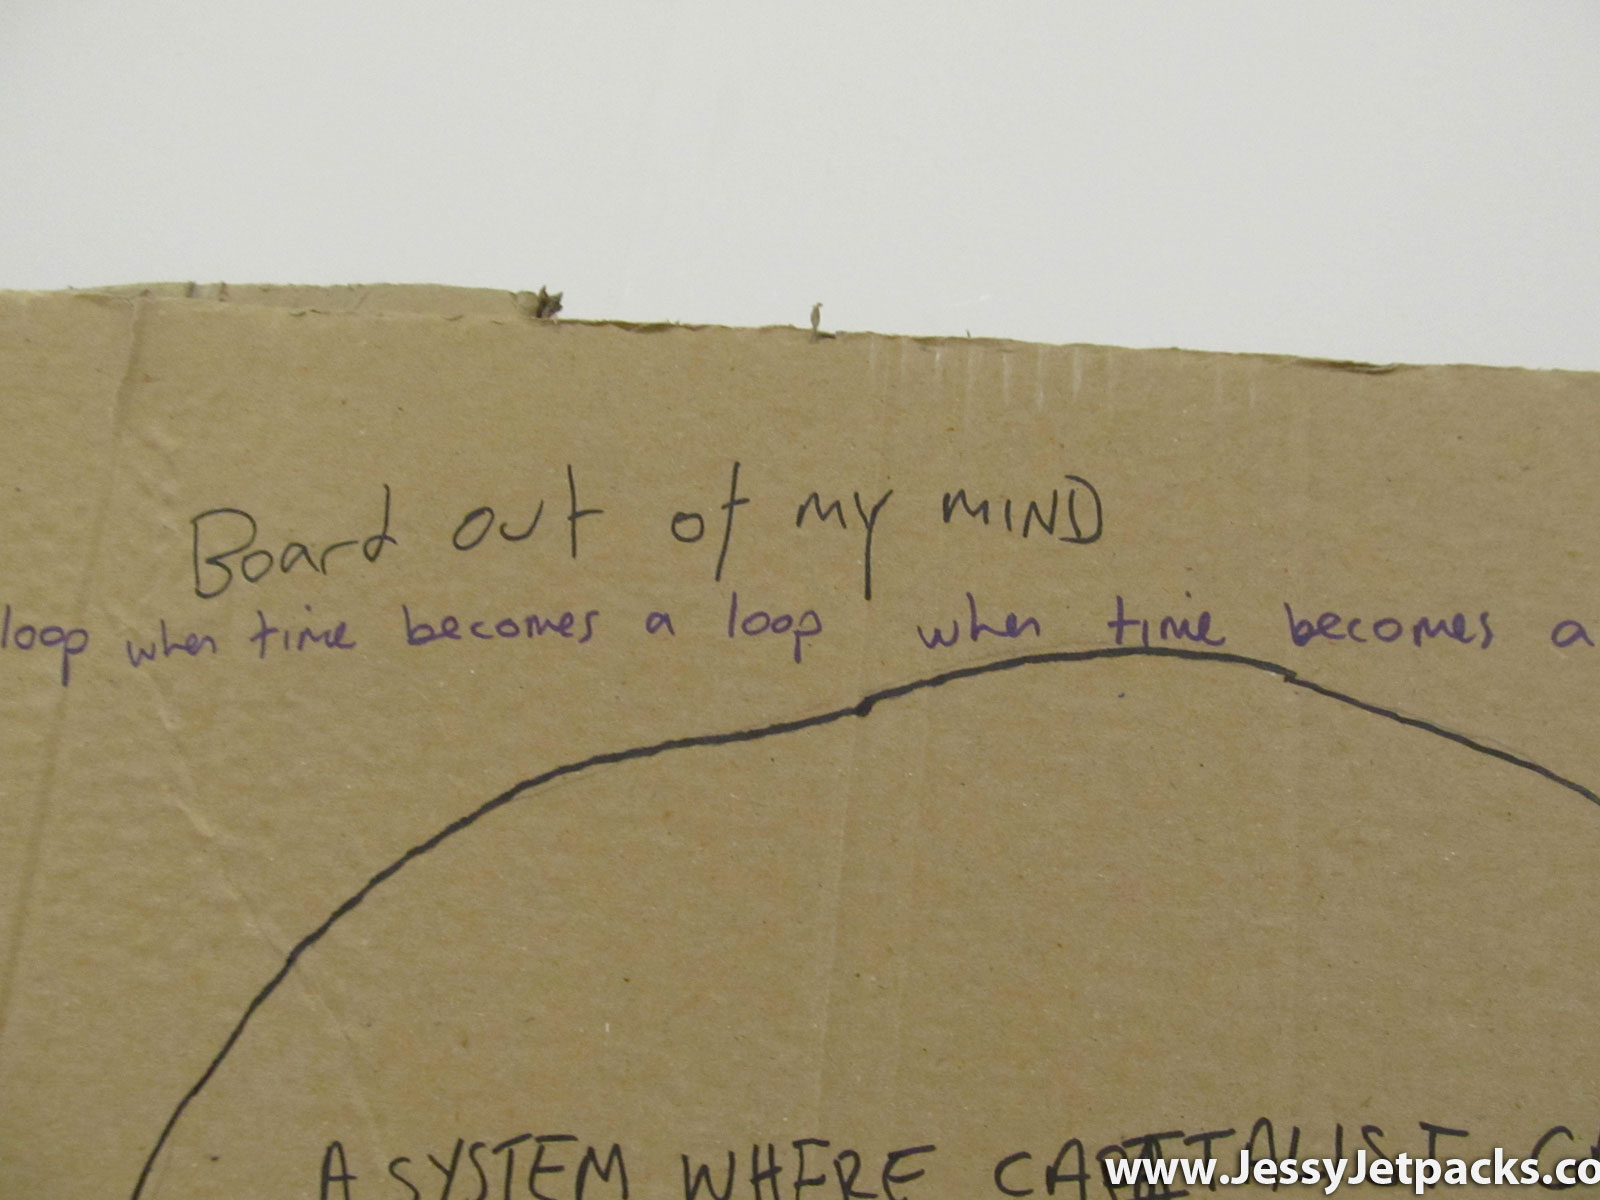 Board out of my MIND
loop when time becomes a loop when time becomes a
A SYSTEM WHERE CAPITALIST
www.JessyJetpacks.co